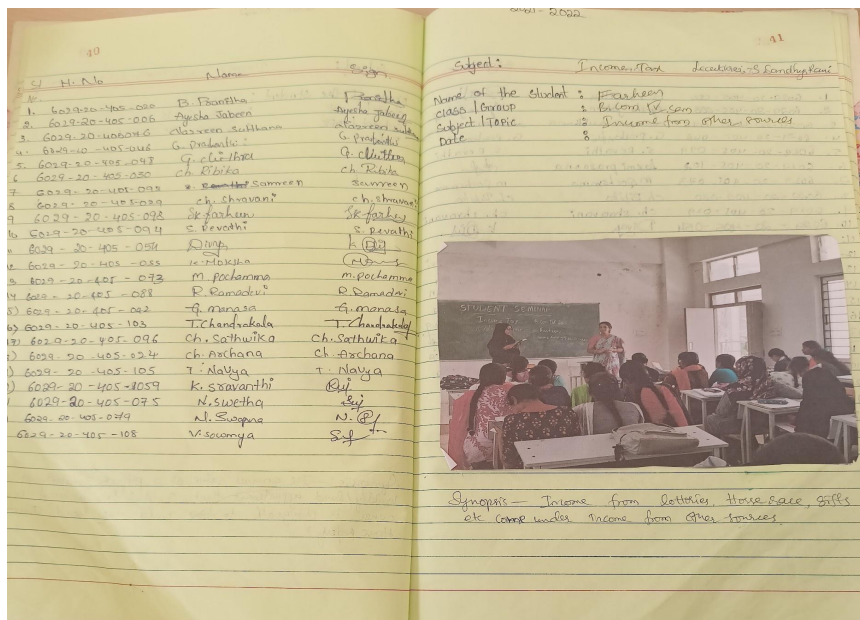 40
S H.No Name Sign
1. 6029-20-405-020 B. Pranitha Pranitha
2. 6029-20-405-006 Ayesha Jabeen Ayesha Jabeen
3. Nazreen Sulthana Nazreen
4. 405-046 G. Prashanthi G. Prashanthi
5. 6029-20-405-048 G. Chithra G. Chithra
6 6029-20-405-030 Ch. Ribika Ch Ribika
7 6029-20-405-092 Samreen Samreen
8 6029-20-405-029 Ch. Shravani Ch. Shravani
9 6029-20-405-098 SK farheen SK farheen
10 6029-20-405-094 S. Revathi S. Revathi
6029-20-405-054 Divya
6029-20-405-055 K. Moksha
6029-20-405-073 M. Pochamma M. Pochamma
14 6029-20-405-088 R. Ramadevi R. Ramadevi
6029-20-405-042 G. manasa G. manasa
6029-20-405-103 T. Chandrakala T. Chandrakala
6029-20-405-096 Ch. Sathwika Ch. Sathwika
6029-20-405-024 Ch. Archana Ch. Archana
6029-20-405-105 T. Navya T. Navya
6029-20-405-8059 K. Sravanthi
6029-20-405-075 N. Swetha
6029-20-405-079 N. Swapna N.
6029-20-405-108 V. Sowmya
2021-2022
41
Subject: Income Tax Lecturer:- S. Sandhya Rani
Name of the Student : Farheen
Class/Group : B.Com IV Sem
Subject/Topic : Income from other sources
Date :
STUDENT SEMINAR
Synopsis- Income from lotteries, Horse race, gifts
etc come under Income from Other Sources